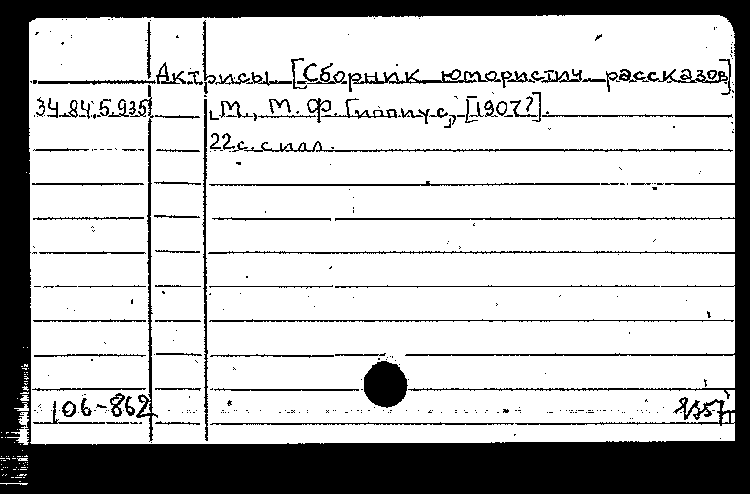 Актрисы [Сборник юмористич. рассказов]
34.84.5.935 М., М. Ф. Гиппиус, [1907?].
22 с. с илл.
106-862